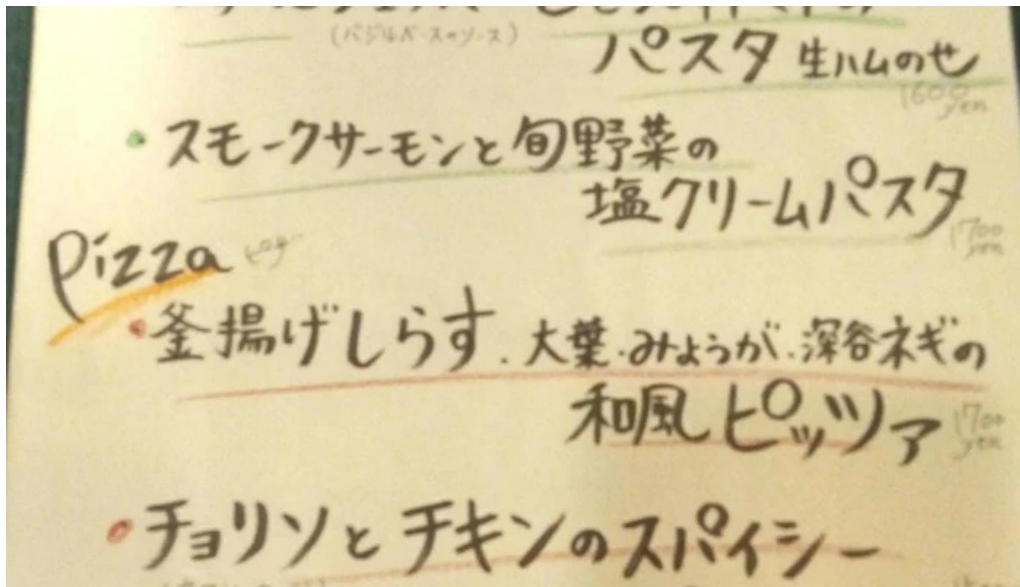 (バジルベースのソース)
パスタ 生ハムのせ
1600 yen
・スモークサーモンと旬野菜の
塩クリームパスタ
1700 yen
Pizza ピザ
・釜揚げしらす、大葉・みょうが、深谷ネギの
和風ピッツァ
1700 yen
・チョリソとチキンのスパイシー